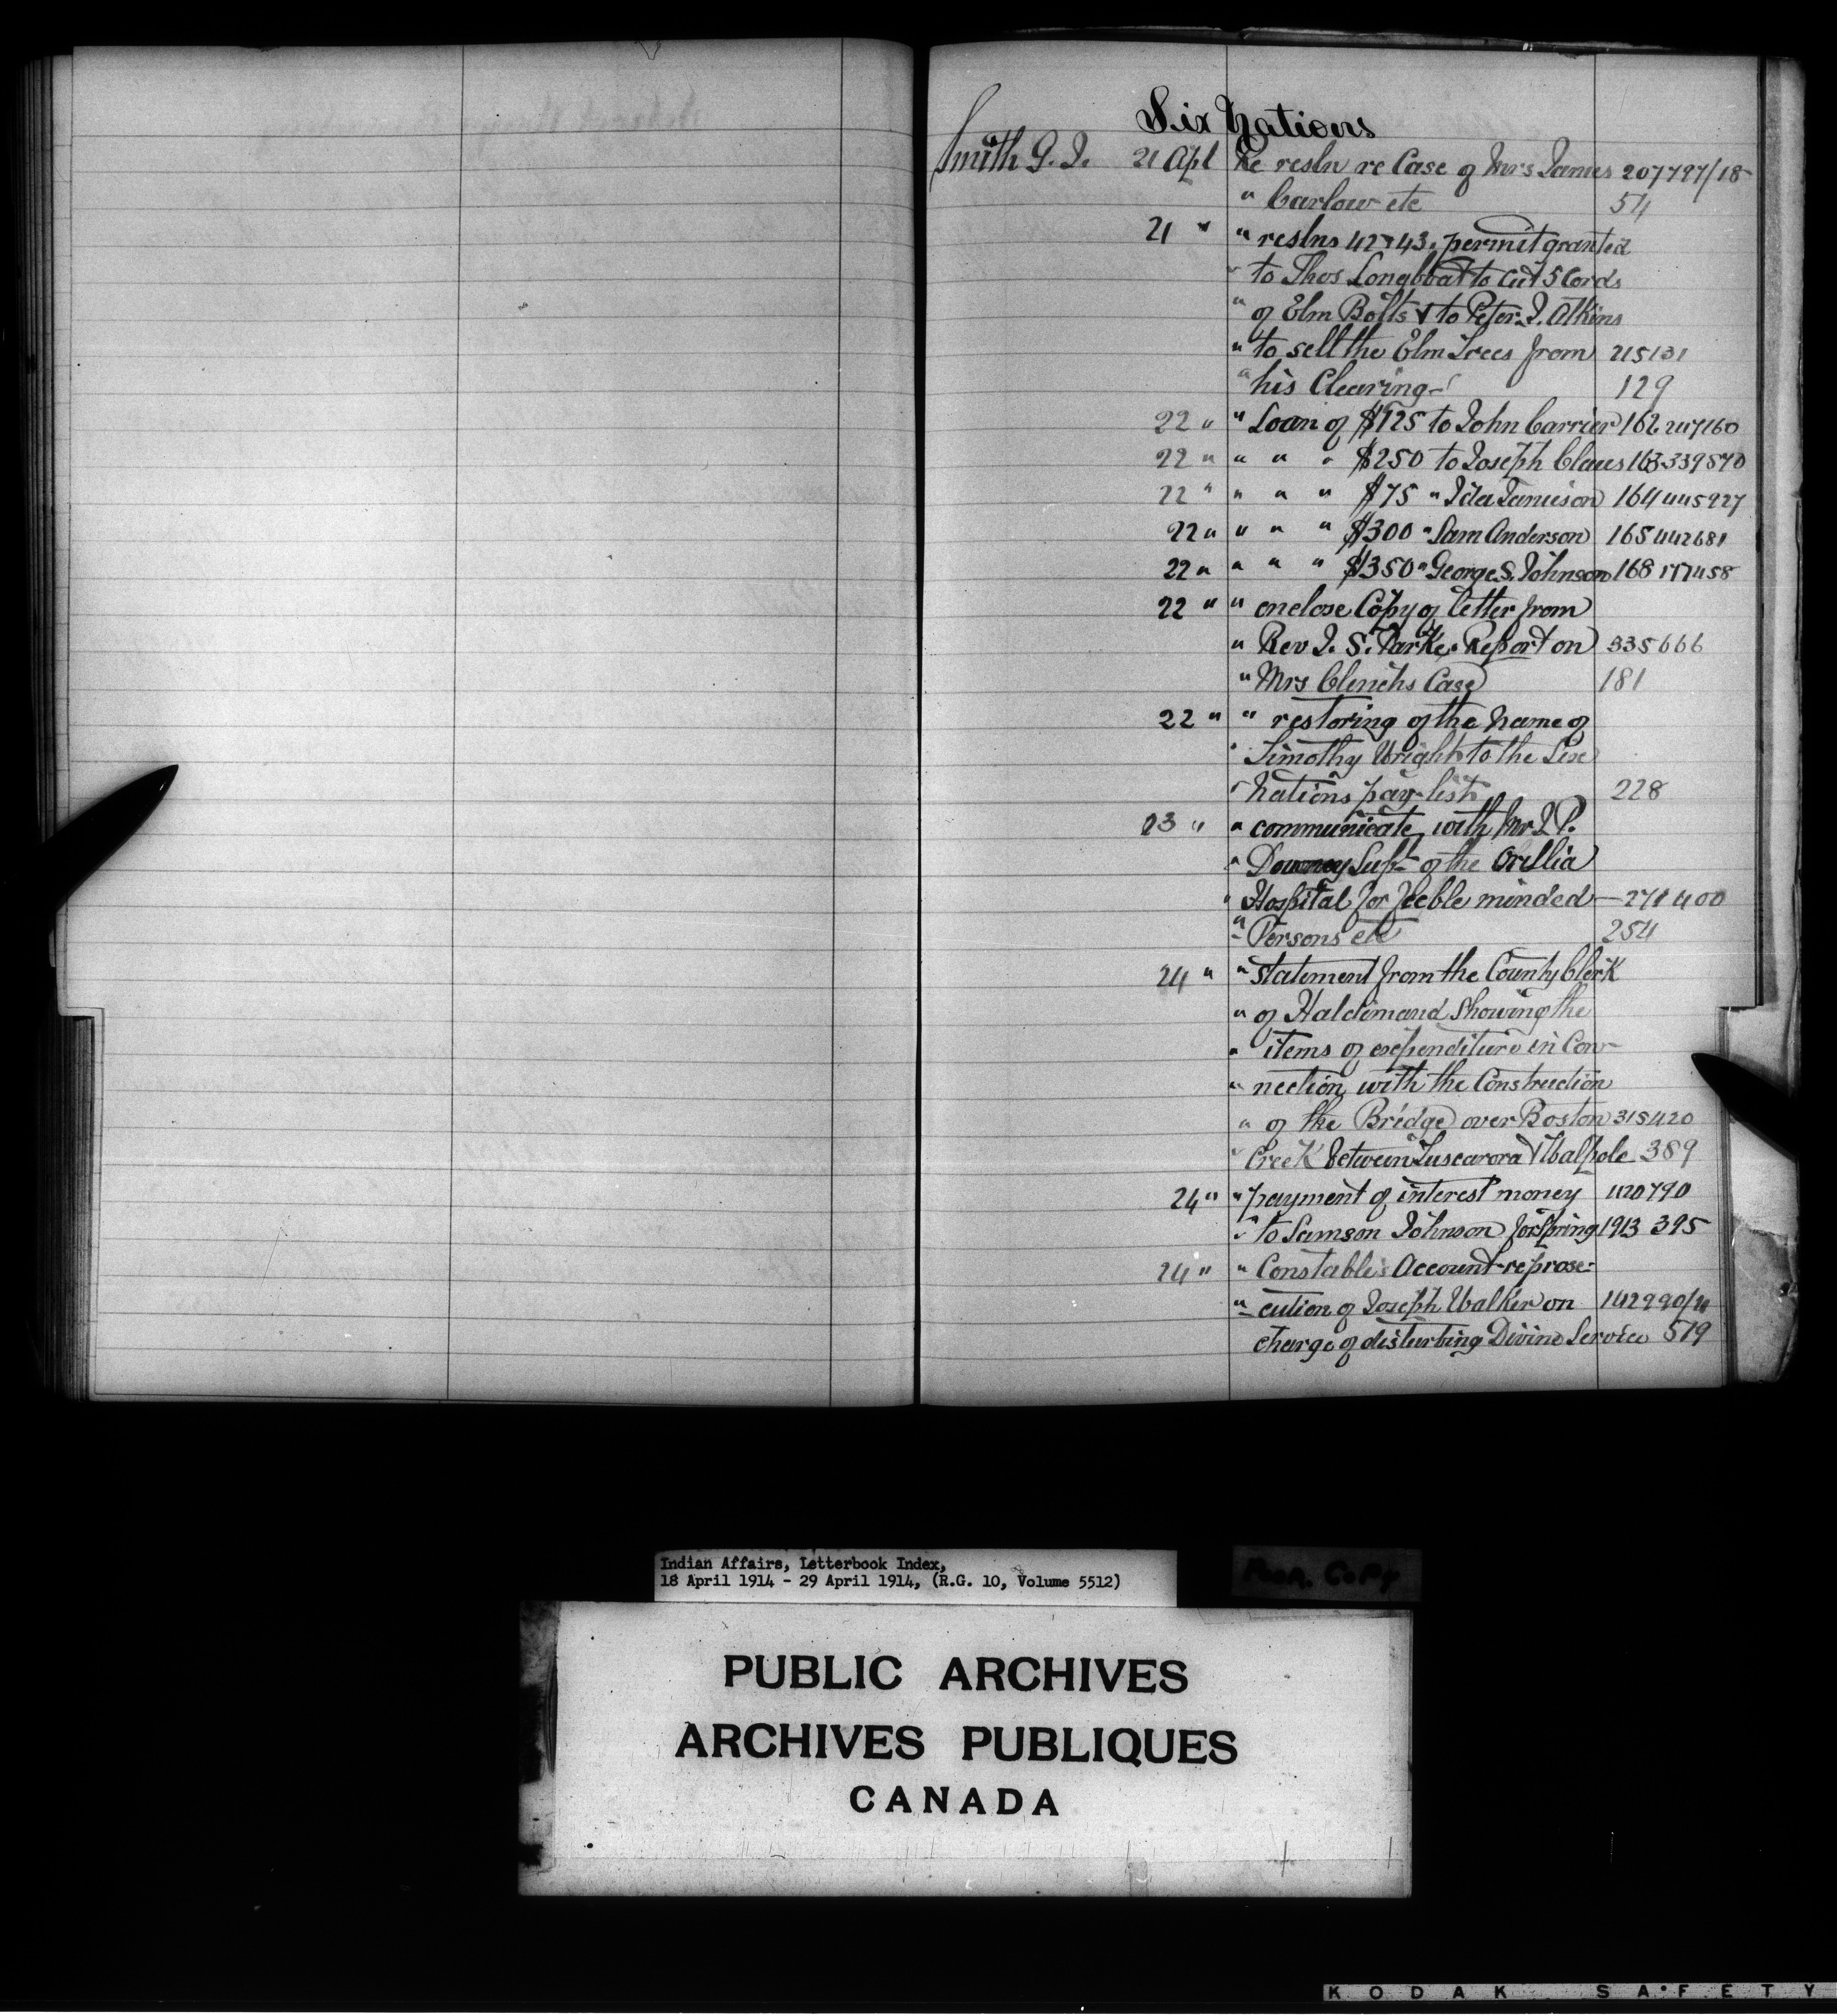 Six Nations
Smith G. J. 21 Apl Re resln re Case of Mrs James 207797/18
" Carlow etc 54
21 " " reslns 42 & 43. permit granted
" to Thos Longboat to cut 5 Cords
" of Elm Bolts & to Peter J. Atkins
" to sell the Elm Trees from 215131
" his Clearing 129
22 " " Loan of $125 to John Carrier 162 247160
22 " " " " $250 to Joseph Claus 163 339570
22 " " " " $75 " Ida Jamieson 164 445927
22 " " " " $300 " Sam Anderson 165 442681
22 " " " " $350 " George S. Johnson 168 177458
22 " " enclose Copy of letter from
" Rev J. S. Parke. Report on 335666
" Mrs Clenchs Case 181
22 " " restoring of the Name of
" Timothy Wright to the Six
" Nations pay-list 228
23 " " communicate with Mr J P.
" Downey Supt of the Orillia
" Hospital for Feeble minded — 271400
" Persons etc 254
24 " " statement from the County Clerk
" of Haldimand Showing the
" items of expenditure in Con-
" nection with the Construction
" of the Bridge over Boston 315420
" Creek between Tuscarora & Walpole 389
24 " " payment of interest money 420790
" to Samson Johnson for Spring 1913 395
24 " " Constable's Account re prose-
" cution of Joseph Walker on 142990/4
charge of disturbing Divine Service 579
Indian Affairs, Letterbook Index,
18 April 1914 - 29 April 1914, (R.G. 10, Volume 5512)
Poor Copy
PUBLIC ARCHIVES
ARCHIVES PUBLIQUES
CANADA
KODAK SAFETY